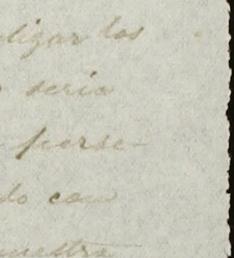 lizar los
seria
perse-
do con
nuestra